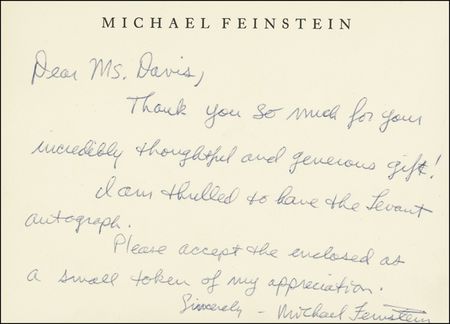 MICHAEL FEINSTEIN
Dear Ms. Davis,
Thank you so much for your
incredibly thoughtful and generous gift!
I am thrilled to have the Levant
autograph.
Please accept the enclosed as
a small token of my appreciation.
Sincerely - Michael Feinstein